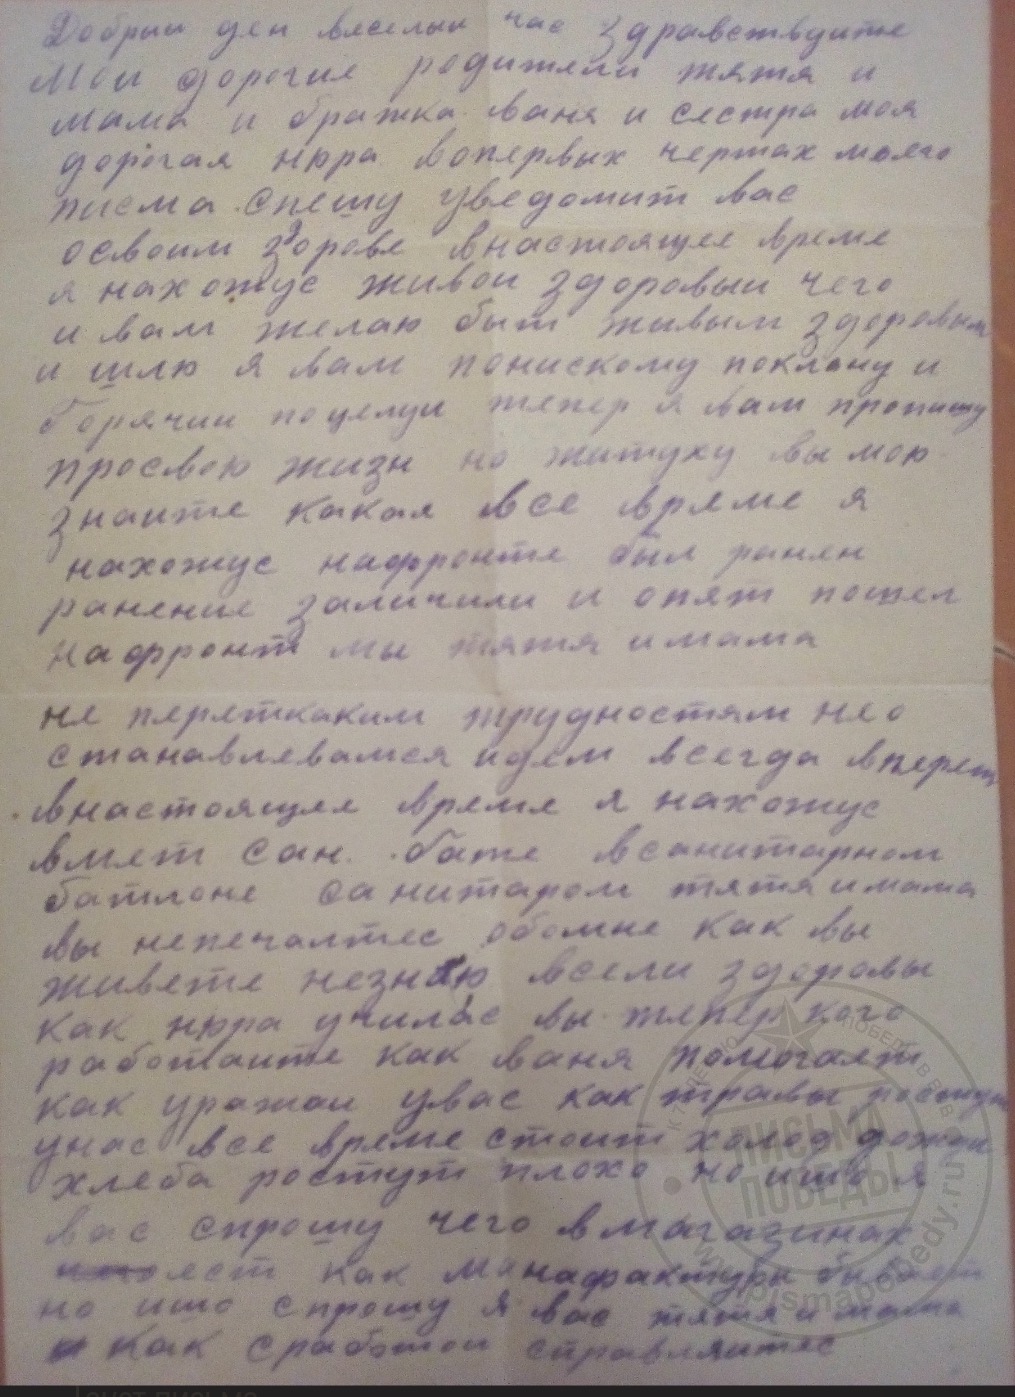 Добрыи ден веселыи час здравствуите
Мои дорогие родители тятя и
мама и братка ваня и сестра моя
дорогая нюра вопервых чертах моего
писма спешу уведомит вас
освоим здорове внастоящее време
я нахожус живои здоровыи чего
и вам желаю быт живым здоровым
и шлю я вам понискому поклону и
Горячии поцелуи тепер я вам пропишу
просвою жизн но житуху вы мою
знаите какая все време я
нахожус нафронте был ранен
ранение заличили и опят пошел
нафронт мы тятя и мама
не переткаким трудностям нео
станавлеваемся идем всегда вперет
внастоящее время я нахожус
вмет сан. бате всанитарном
батлоне санитаром тятя и мама
вы непечалтес обомне как вы
живете незнаю всели здоровы
как нюра училас вы тепер кого
работаите как ваня помогает
как уражаи увас как травы ростут
унас все време стоит холод дожди
хлеба ростут плохо но ишо я
вас спрошу чего вмагазинах
ест как манафактуры бывает
но ишо спрошу я вас тятя и мама
как сработои справляитес
ПИСЬМА
ПОБЕДЫ
www.pismapobedy.ru